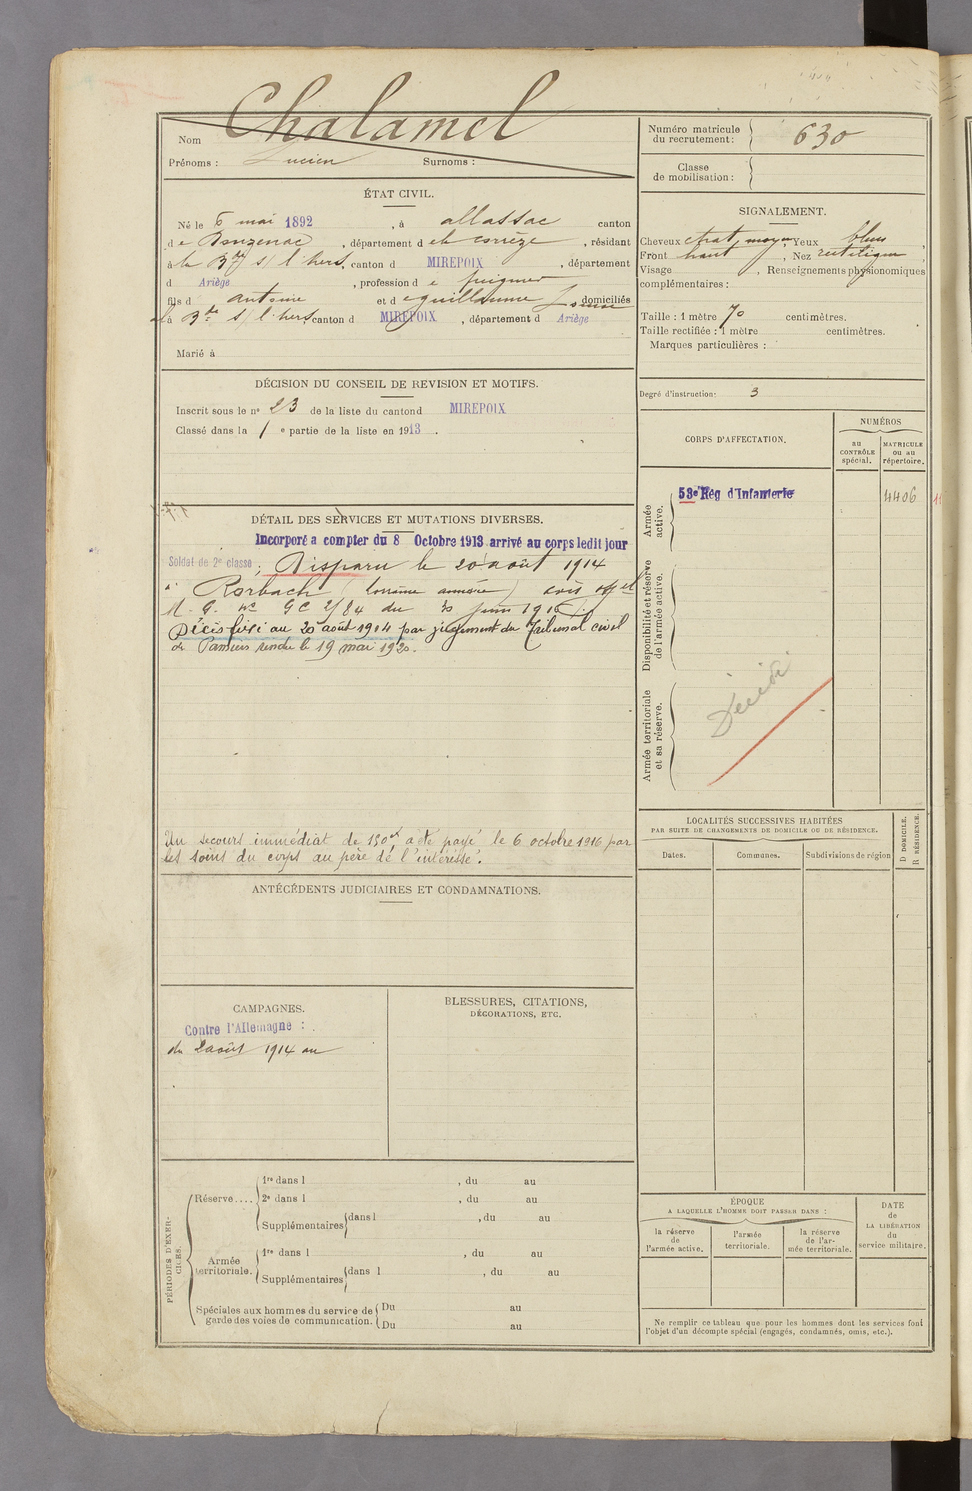 Nom Chalamel
Prénoms : Lucien Surnoms :
Numéro matricule
du recrutement : 630
Classe
de mobilisation :
ÉTAT CIVIL.
Né le 6 mai 1892, à allassac canton
de Donzenac, département de la corrèze, résidant
à la B de s/ l'hers, canton d MIREPOIX, département
d Ariège, profession de
fils d antoine et de guillaume domiciliés
à la B de s/ l'hers canton d MIREPOIX, département d Ariège
Marié à
SIGNALEMENT.
Cheveux chat. moyen Yeux bleus,
Front haut, Nez rectiligne,
Visage , Renseignements physionomiques
complémentaires :
Taille : 1 mètre 70 centimètres.
Taille rectifiée : 1 mètre centimètres.
Marques particulières :
Degré d'instruction : 3
DÉCISION DU CONSEIL DE REVISION ET MOTIFS.
Inscrit sous le nº 23 de la liste du canton d MIREPOIX
Classé dans la 1 e partie de la liste en 1913.
CORPS D'AFFECTATION.
NUMÉROS
au
CONTRÔLE
spécial.
MATRICULE
ou au
répertoire.
Armée
active.
53e Rég d'Infanterie
4406
Disponibilité et réserve
de l'armée active.
Armée territoriale
et sa réserve.
Décédé
DÉTAIL DES SERVICES ET MUTATIONS DIVERSES.
Incorporé a compter du 8 Octobre 1913 arrivé au corps ledit jour
Soldat de 2e classe; Disparu le 20 août 1914
à Rorbach (lorraine annexée) avis officiel
M. G. nº GC 2/84 du 30 juin 1916
Décès fixé au 20 août 1914 par jugement du Tribunal civil
de Pamiers rendu le 19 mai 1920.
Un secours immédiat de 150f a été payé le 6 octobre 1916 par
les soins du corps au père de l'intéressé.
ANTÉCÉDENTS JUDICIAIRES ET CONDAMNATIONS.
LOCALITÉS SUCCESSIVES HABITÉES
PAR SUITE DE CHANGEMENTS DE DOMICILE OU DE RÉSIDENCE.
Dates.
Communes.
Subdivisions de région
D DOMICILE.
R RÉSIDENCE.
CAMPAGNES.
Contre l'Allemagne :
du 2 août 1914 au
BLESSURES, CITATIONS,
DÉCORATIONS, ETC.
PÉRIODES D'EXER-
CICES.
Réserve....
1re dans l , du au
2e dans l , du au
Supplémentaires dans l , du au
Armée
territoriale.
1re dans l , du au
Supplémentaires dans l , du au
Spéciales aux hommes du service de
garde des voies de communication.
Du au
Du au
ÉPOQUE
A LAQUELLE L'HOMME DOIT PASSER DANS :
la réserve
de
l'armée active.
l'armée
territoriale.
la réserve
de l'ar-
mée territoriale.
DATE
de
LA LIBÉRATION
du
service militaire.
Ne remplir ce tableau que pour les hommes dont les services font
l'objet d'un décompte spécial (engagés, condamnés, omis, etc.).